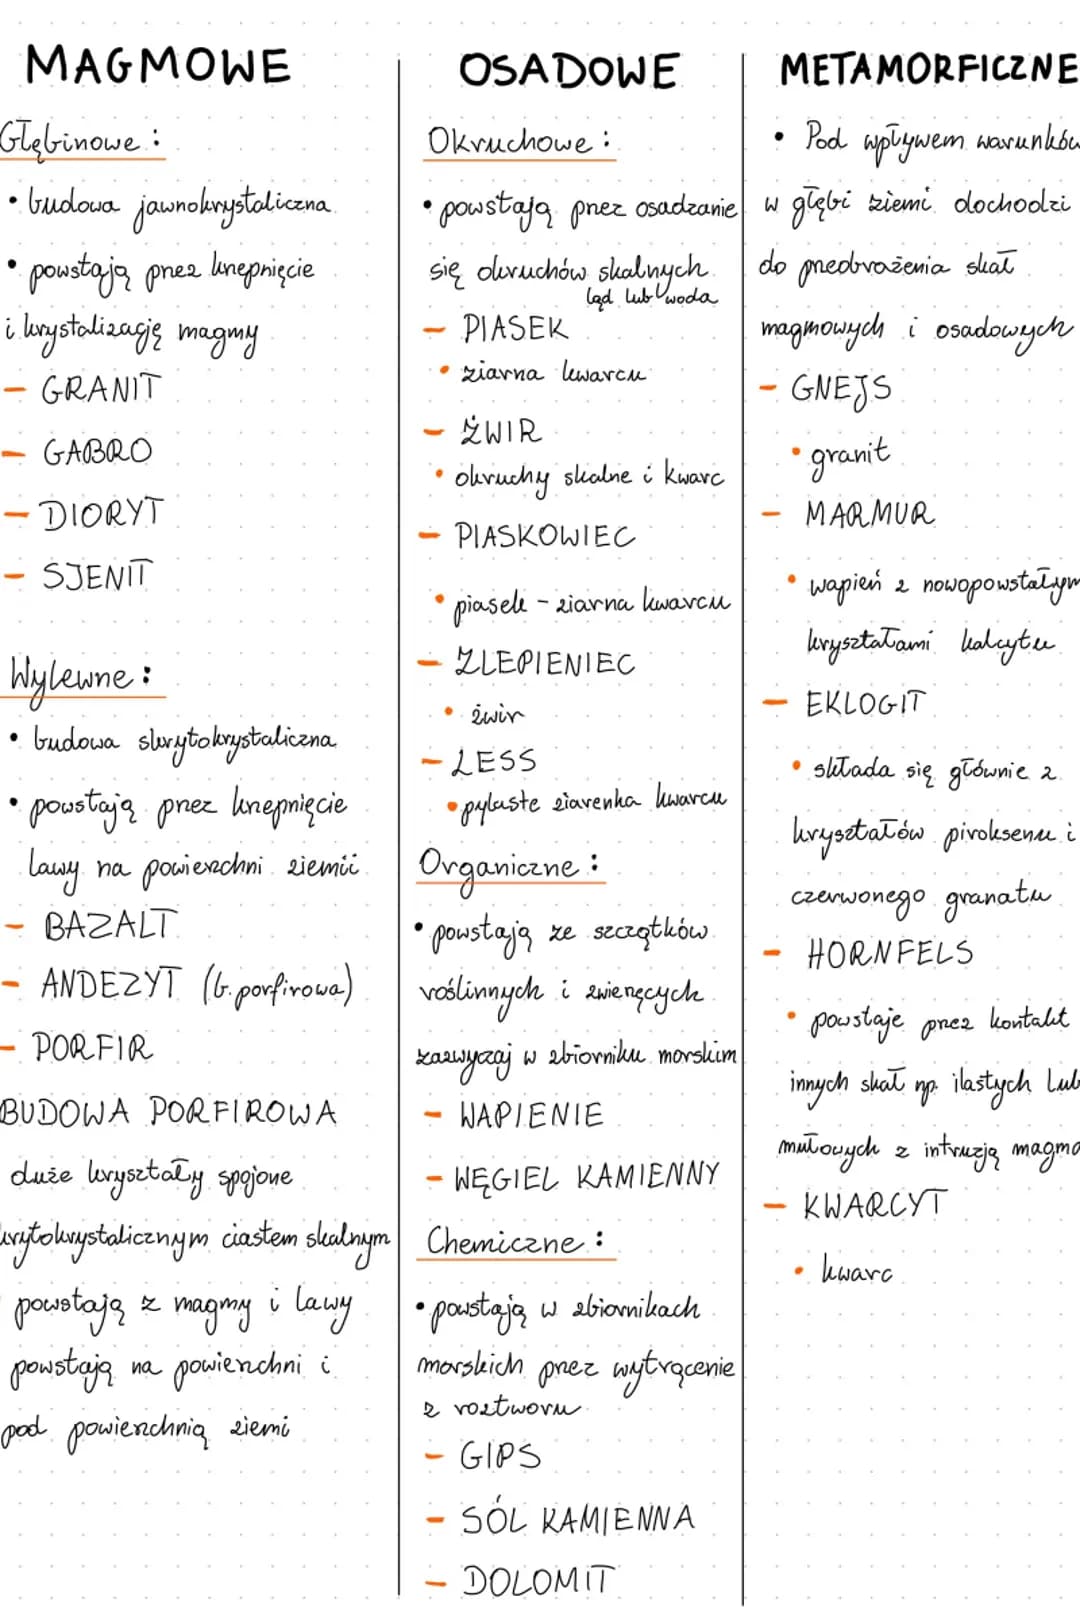 MAGMOWE
Głębinowe:
• budowa jawnokrystaliczna
• powstają przez krzepnięcie
i krystalizację magmy
- GRANIT
- GABRO
- DIORYT
- SJENIT
Wylewne:
• budowa skrytokrystaliczna
• powstają przez krzepnięcie
lawy na powierzchni ziemii
- BAZALT
- ANDEZYT (b. porfirowa)
- PORFIR
BUDOWA PORFIROWA
duże kryształy spojone
krytokrystalicznym ciastem skalnym
powstają z magmy i lawy
powstają na powierzchni i
pod powierzchnią ziemi
OSADOWE
Okruchowe:
• powstają przez osadzanie
się okruchów skalnych
ląd lub woda
- PIASEK
• ziarna kwarcu
- ŻWIR
• okruchy skalne i kwarc
- PIASKOWIEC
• piasek - ziarna kwarcu
- ZLEPIENIEC
• żwir
- LESS
• pylaste ziarenka kwarcu
Organiczne:
• powstają ze szczątków
roślinnych i zwierzęcych
zazwyczaj w zbiorniku morskim
- WAPIENIE
- WĘGIEL KAMIENNY
Chemiczne:
• powstają w zbiornikach
morskich przez wytrącenie
z roztworu
- GIPS
- SÓL KAMIENNA
- DOLOMIT
METAMORFICZNE
• Pod wpływem warunków
w głębi ziemi dochodzi
do przeobrażenia skał
magmowych i osadowych
- GNEJS
• granit
- MARMUR
• wapień z nowopowstałym
kryształami kalcytu
- EKLOGIT
• składa się głównie z
kryształów piroksenu i
czerwonego granatu
- HORNFELS
• powstaje przez kontakt
innych skał np. ilastych lub
mułowych z intruzją magmo
- KWARCYT
• kwarc